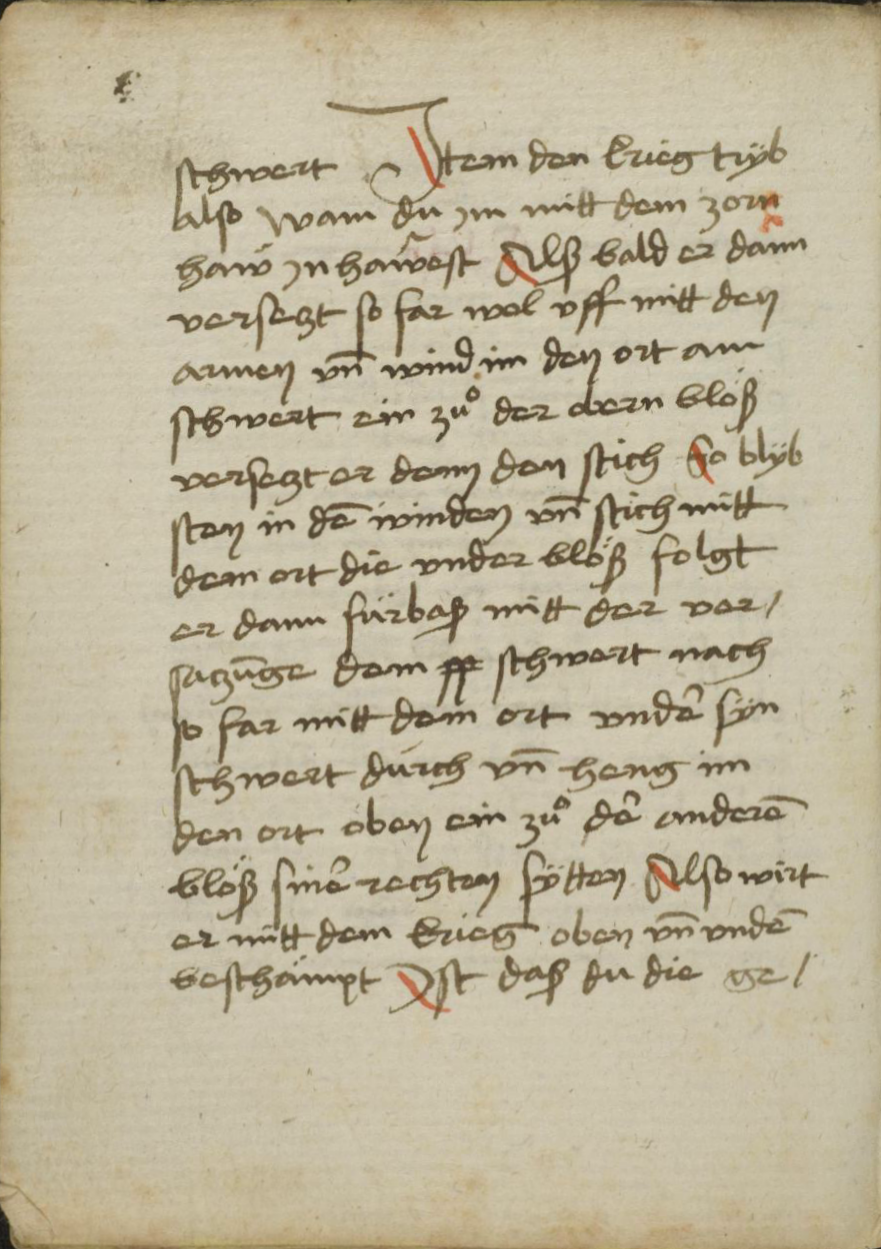 schwert Item den krieg tryb
also wann du im mitt dem zorn
haw̄ in haw̄est Alß bald er dann
versetzt so far wol vff mitt den
armen vn̄ wind im den ort am
schwert ein zuͦ der obern blöß
versetzt er denn den stich So blÿb
sten in dē winden vn̄ stich mitt
dem ort die vnder blöß folgt
er dann fürbaß mitt der ver/
satzūge dem schwert nach
so far mitt dem ort vnder̄ syn
schwert durch vn̄ heng im
den ort oben ein zuͦ der̄ anderē
blöß siner̄ rechten sÿtten Also wirt
er mitt dem krieg oben vn̄ vndē
beschämpt Ist daß du die ge/